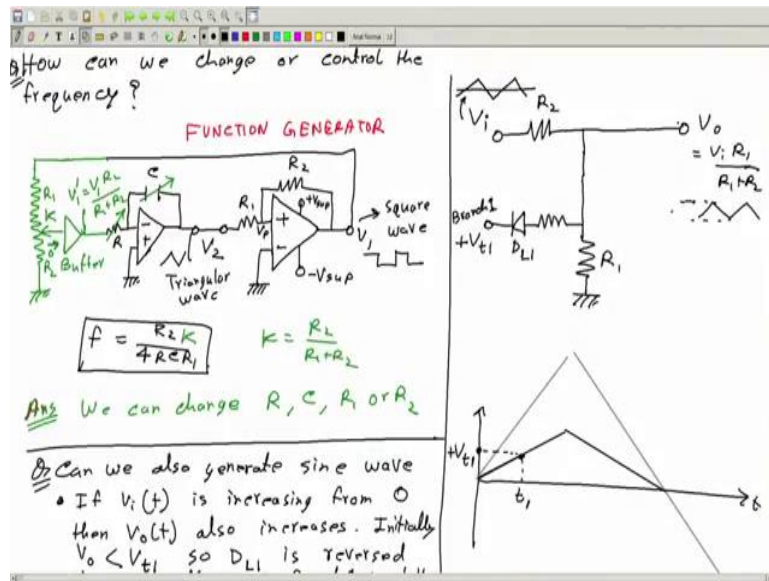 Q How can we change or control the
frequency?
FUNCTION GENERATOR
R1
K
R2
V1' = V1 R2 / R1+R2
Buffer
R
C
V2
Triangular
wave
R1
Vp
R2
+Vsup
-Vsup
V1
Square
wave
f = R2 K / 4 R C R1
K = R2 / R1+R2
Ans We can change R, C, R1 or R2
Q Can we also generate sine wave
• If Vi(t) is increasing from 0
then Vo(t) also increases. Initially
Vo < Vt1 so DL1 is reversed
Vi
R2
Vo
= Vi R1 / R1+R2
Branch I
+Vt1
DL1
R1
+Vt1
t1
t